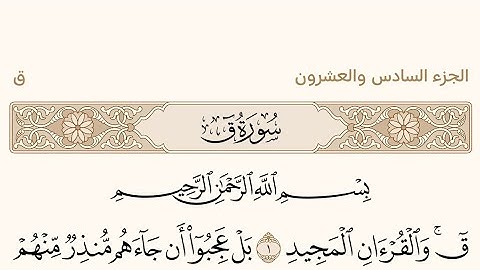 الجزء السادس والعشرون ق
سُورَةُ قٓ
بِسْمِ ٱللَّهِ ٱلرَّحْمَٰنِ ٱلرَّحِيمِ
قٓۚ وَٱلْقُرْءَانِ ٱلْمَجِيدِ ١ بَلْ عَجِبُوٓا۟ أَن جَآءَهُم مُّنذِرٌ مِّنْهُمْ